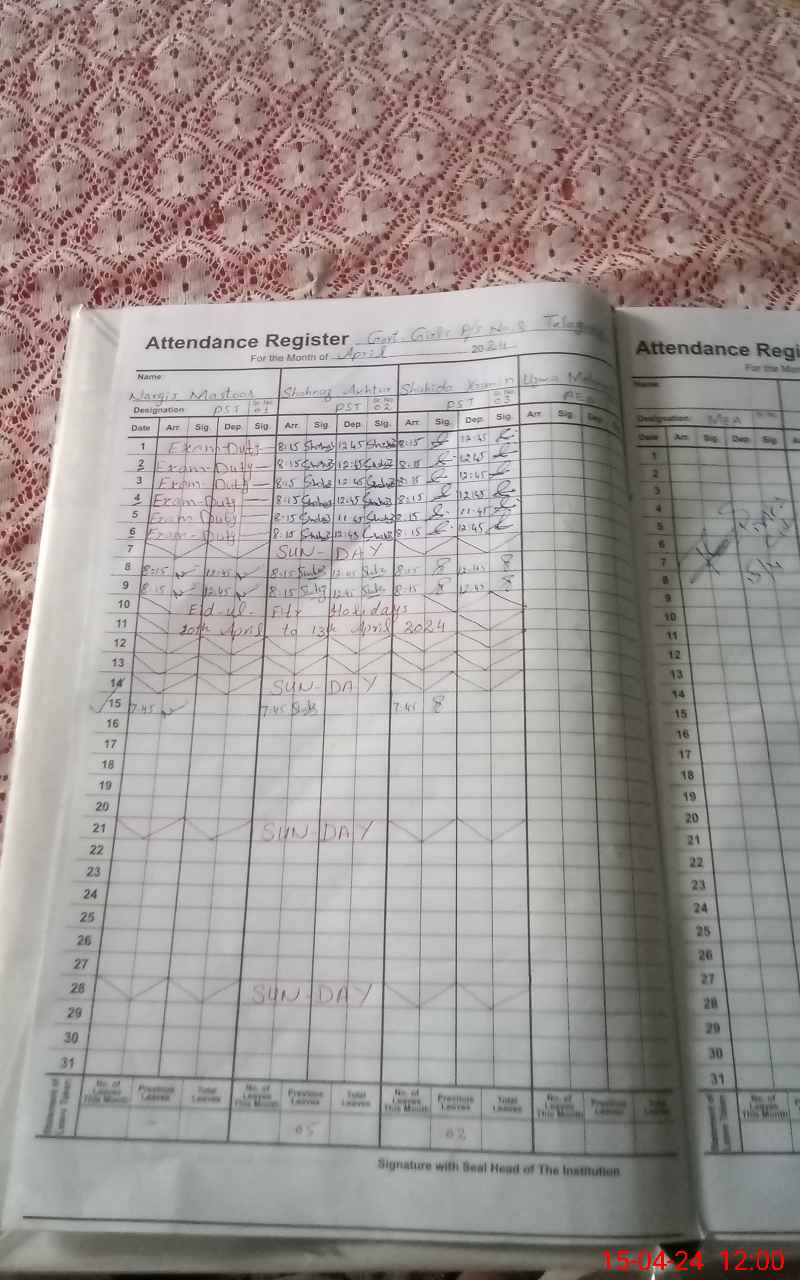 Attendance Register Govt. Girls P/S No. 8
For the Month of April 2024
Name: Nargis Mastoor Shahnaz Akhtar Shahida
Designation: PST Sr. No. 01 PST Sr. No. 02 PST Sr. No. 03
Date Arr. Sig. Dep. Sig. Arr. Sig. Dep. Sig. Arr. Sig. Dep. Sig. Arr. Sig. Dep.
1 Exam-Duty 8:15 12:45 8:15 12:45
2 Exam-Duty 8:15 12:45 8:15 12:45
3 Exam-Duty 8:15 12:45 8:15 12:45
4 Exam-Duty 8:15 12:45 8:15 12:45
5 Exam-Duty 8:15 11:45 8:15 11:45
6 Exam-Duty 8:15 12:45 8:15 12:45
7 SUN-DAY
8 8:15 12:45 8:15 12:45 8:15 12:45
9 8:15 12:45 8:15 12:45 8:15 12:45
10 Eid-ul-Fitr Holidays
11 10th April to 13th April 2024
12
13
14 SUN-DAY
15 7:45 7:45 7:45
16
17
18
19
20
21 SUN-DAY
22
23
24
25
26
27
28 SUN-DAY
29
30
31
No. of Leaves This Month Previous Leaves Total Leaves No. of Leaves This Month Previous Leaves Total Leaves No. of Leaves This Month Previous Leaves Total Leaves No. of Leaves This Month Previous Leaves Total Leaves
05 02
Signature with Seal Head of The Institution
Attendance Regi
For the Mon
Name:
Designation: MEA
Date Arr. Sig. Dep. Sig.
1
2
3
4
5
6
7
8
9
10
11
12
13
14
15
16
17
18
19
20
21
22
23
24
25
26
27
28
29
30
31
No. of Leaves This Month
15-04-24 12:00